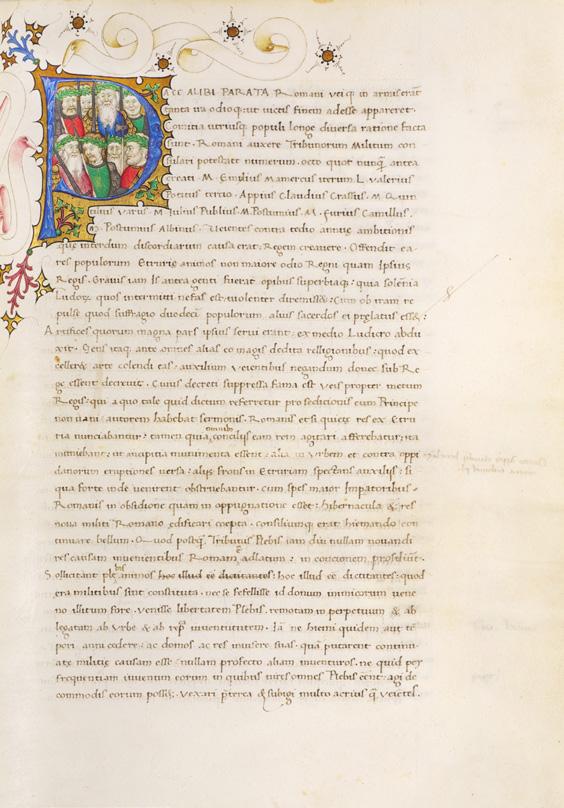 PACE ALIBI PARATA Romani veiqꝫ in armis erāt
tanta ira odioqꝫ ut victis finem adesse appareret.
Comitia utriusqꝫ populi longe diversa ratione facta
sunt. Romani auxere Tribunorum Militum con
sulari potestate numerum. octo quot nunqꝫ antea
creati. M. Emilius Mamercus iterum L. Valerius
Potitus tertio. Appius Claudius Crassus. M. Quin
tilius Varus. M. Iulius Publius. M. Postumius. M. Furius Camillus.
M. Postumius Albinus. Veientes contra tedio annue ambitionis
que interdum discordiarum causa erat: Regem creavere. Offendit ea
res populorum Etrurie animos non maiore odio Regni quam ipsius
Regis. Gravis iam is antea genti fuerat opibus superbiaqꝫ: quia solenia
Ludoꝝ quos intermitti nefas est violenter diremisset: Cum ob iram re
pulse quod suffragio duodeci populorum alius sacerdos ei prelatus esset:
Artifices quorum magna pars ipsius servi erant: ex medio Ludicro abdu
xit. Gens itaqꝫ ante omnes alias eo magis dedita relligionibus: quod ex
celleret arte colendi eas: auxilium veientibus negandum donec sub Re
ge essent decrevit. Cuius decreti suppressa fama est Veis propter metum
Regis: qui a quo tale quid dictum referretur pro sedicionis eum Principe
non vani autorem habebat sermonis. Romanis etsi quiete res ex Etru
ria nunciabantur: tamen quia omnibus conciliis eam rem agitari afferebatur: ita
muniebant: ut ancipitia munimenta essent: alia in Urbem et contra oppi
danorum eruptiones versa: aliis frons in Etruriam spectans auxiliis: si
qua forte inde venirent obstruebantur. cum spes maior Imperatoribus
Romanis in obsidione quam in oppugnatione esset: hibernacula & res
nova militi Romano edificari coepta. consiliumqꝫ erat hiemando con
tinuare bellum. Quod postqꝫ Tribunis Plebis iam diu nullam novandi
res causam invenientibus Romam ē adlatum: in concionem prosiliunt.
Sollicitant plebis animos hoc illud eē dictitantes: hoc illud eē dictitantes: quod
era militibus sint constituta. nec se fefellisse id donum inimicorum vene
no illitum fore. venisse libertatem Plebis. remotam in perpetuum & ab
legatam ab Urbe & ab rep̄ iuventutem. Iā ne hiemi quidem aut tē
pori anni cedere: ac domos ac res invisere suas. quā putarent continu
ate militie causam esse: nullam profecto aliam inventuros. ne quid per
frequentiam iuvenum eorum in quibus vires omnes Plebis eent. agi de
commodis eorum posset. Vexari p̄terea & subigi multo acrius qꝫ veietes.